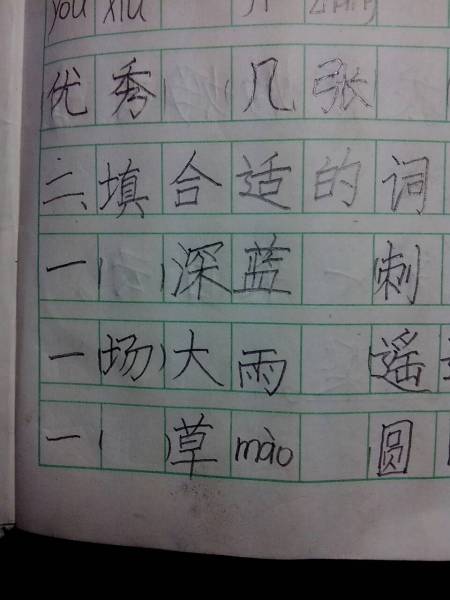 yōu xiù
优秀 几张
二、填合适的词
一( )深蓝 刺
一(场)大雨 遥
一( )草mào 圆